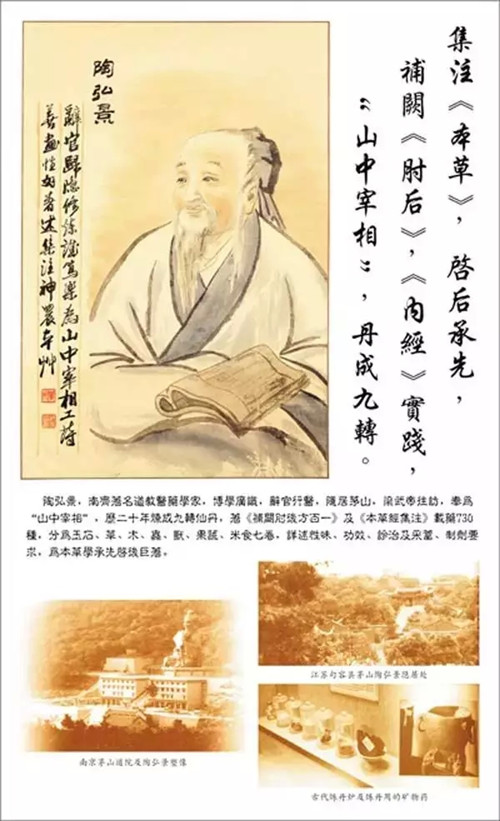 集注《本草》，啓后承先，
補闕《肘后》，《内經》實踐，
“山中宰相”，丹成九轉。
陶弘景
辭官歸隱修煉篤樂為山中宰相工詩
善畫性好著述集注神農本艸
陶弘景，南齊著名道教醫藥學家，博學廣識，辭官行醫，隱居茅山，梁武帝往訪，奉爲
“山中宰相”，歷二十年煉成九轉仙丹，著《補闕肘後方百一》及《本草經集注》載藥730
種，分爲玉石、草、木、蟲、獸、果蔬、米食七卷，詳述性味、功效、診治及采蓄、制劑要
求，爲本草學承先啓後巨著。
江苏句容县茅山陶弘景隐居处
南京茅山道院及陶弘景塑像
古代炼丹炉及炼丹用的矿物药